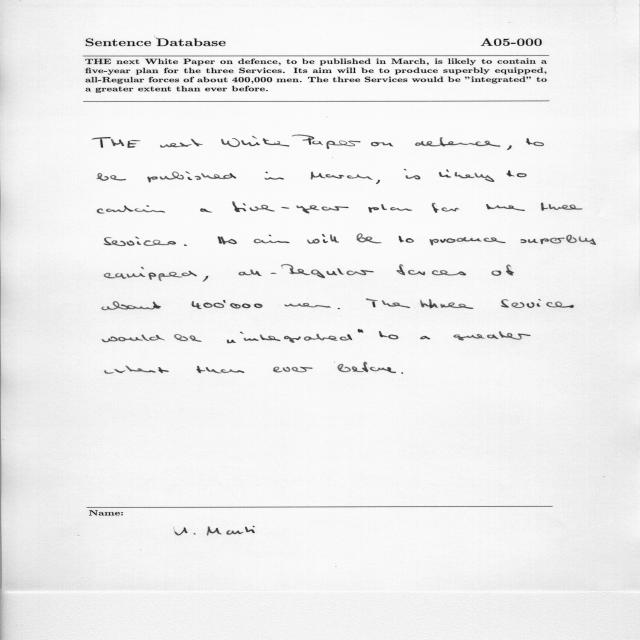 Sentence Database A05-000
THE next White Paper on defence, to be published in March, is likely to contain a
five-year plan for the three Services. Its aim will be to produce superbly equipped,
all-Regular forces of about 400,000 men. The three Services would be "integrated" to
a greater extent than ever before.
THE next White Paper on defence, to
be published in March, is likely to
contain a five-year plan for the three
Services. Its aim will be to produce superbly
equipped, all-Regular forces of
about 400'000 men. The three Services
would be „integrated" to a greater
extent than ever before.
Name:
U. Marti